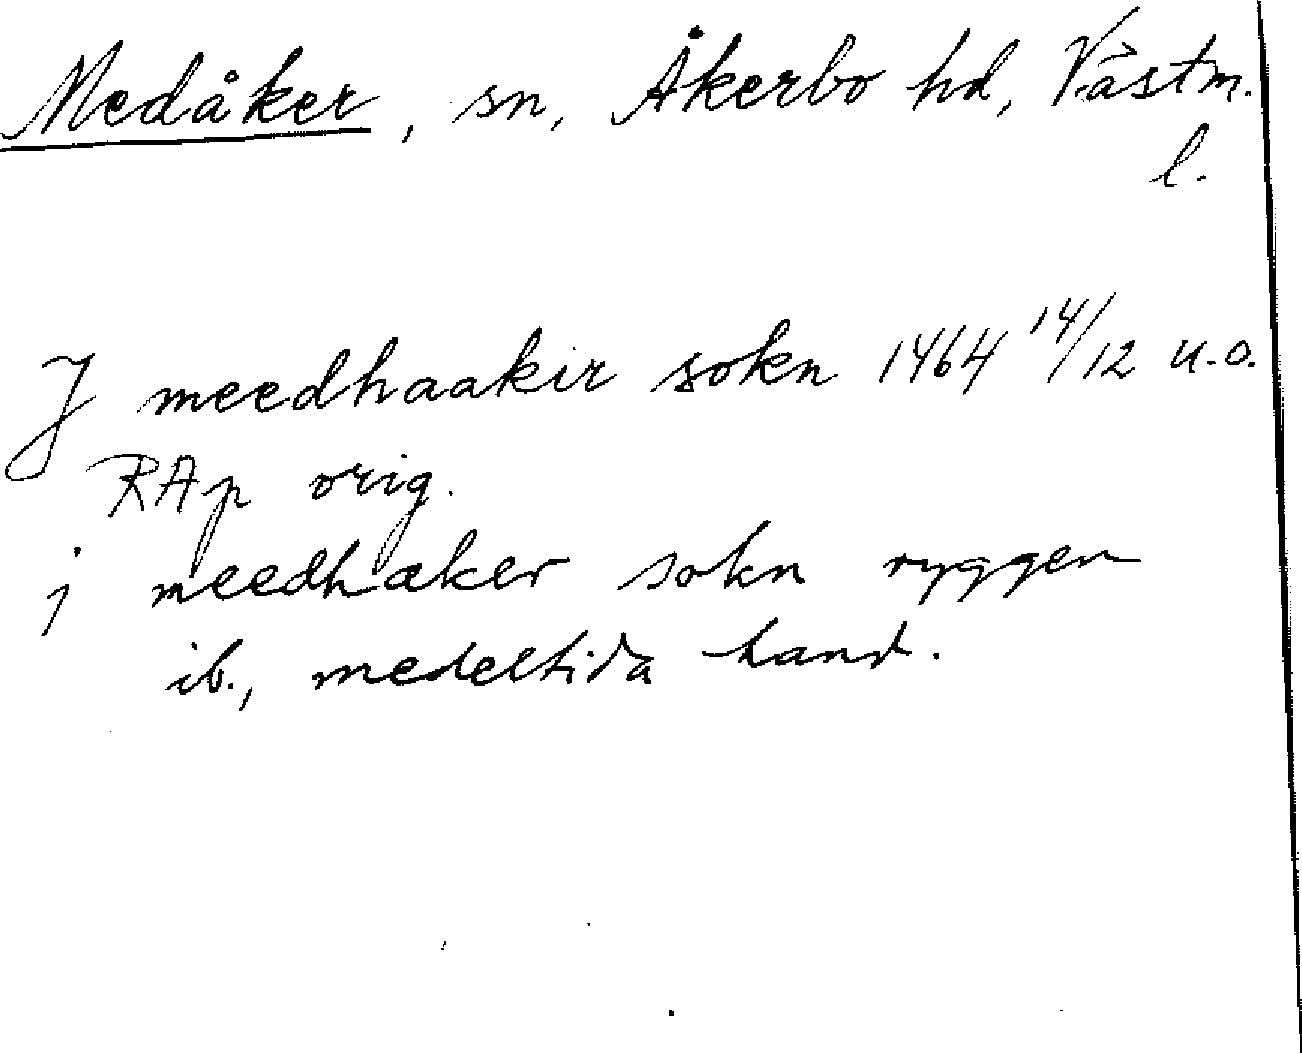 Medåker, sn, Åkerbo hd, Västm.
l.
J meedhaakir sokn 1464 14/12 u.o.
RAp orig.
j meedhaker sokn ryggen
ib., medeltida hand.